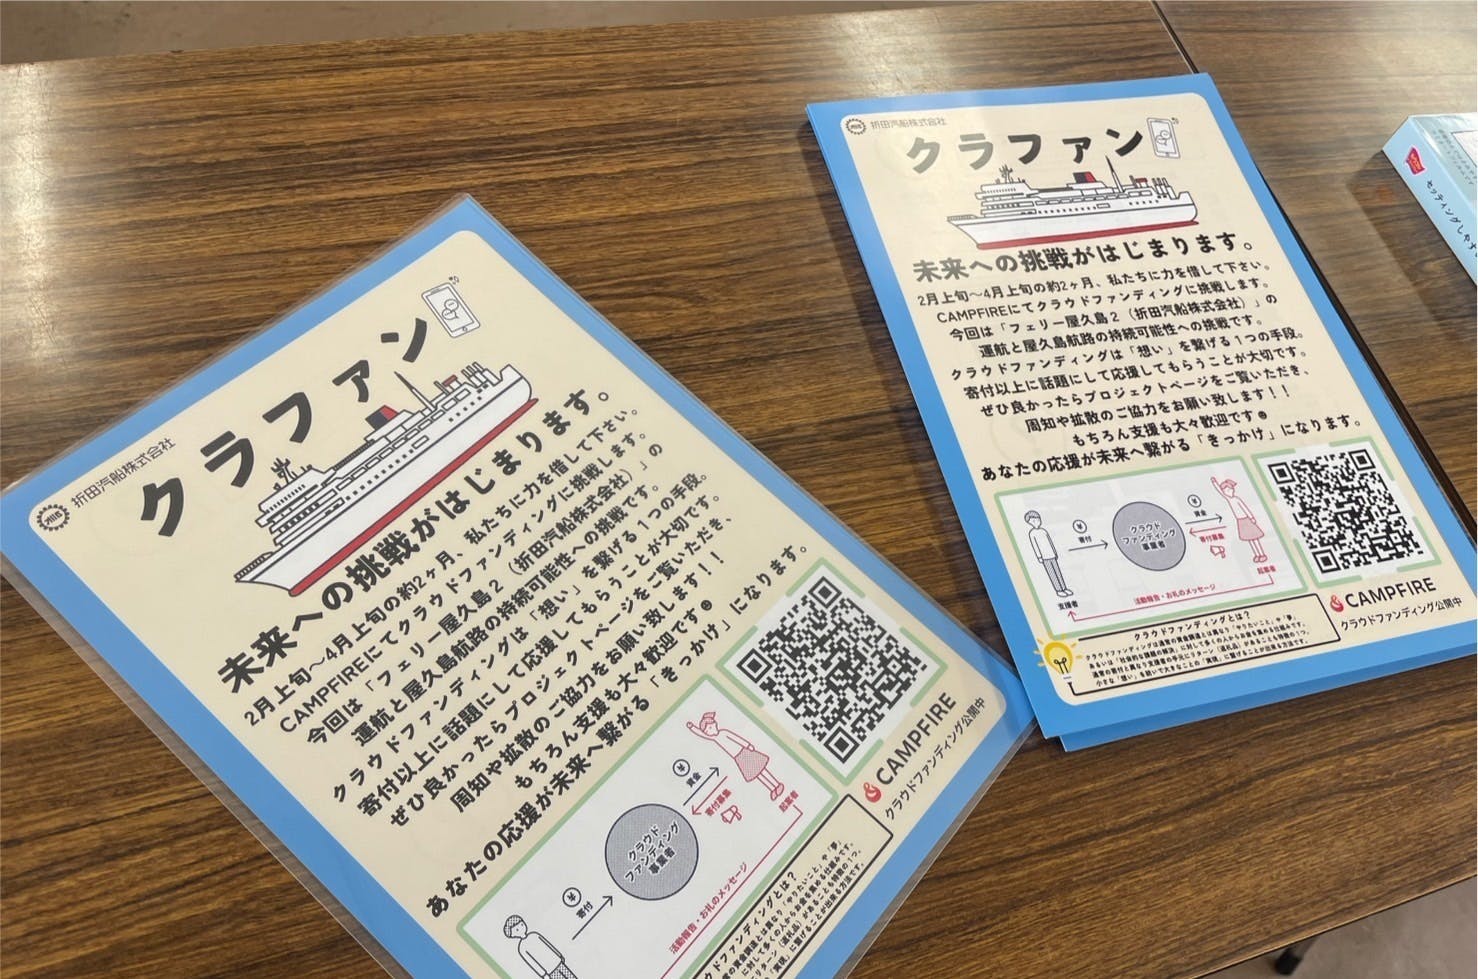 折田汽船株式会社
クラファン
未来への挑戦がはじまります。
2月上旬〜4月上旬の約2ヶ月、私たちに力を借して下さい。
CAMPFIREにてクラウドファンディングに挑戦します。
今回は「フェリー屋久島2（折田汽船株式会社）」の
運航と屋久島航路の持続可能性への挑戦です。
クラウドファンディングは「想い」を繋げる1つの手段。
寄付以上に話題にして応援してもらうことが大切です。
ぜひ良かったらプロジェクトページをご覧いただき、
周知や拡散のご協力をお願い致します！！
もちろん支援も大々歓迎です
あなたの応援が未来へ繋がる「きっかけ」になります。
¥
寄付
クラウド
ファンディング
事業者
¥
資金
寄付募集
起案者
活動報告・お礼のメッセージ
CAMPFIRE
クラウドファンディング公開中
折田汽船株式会社
クラファン
未来への挑戦がはじまります。
2月上旬〜4月上旬の約2ヶ月、私たちに力を借して下さい。
CAMPFIREにてクラウドファンディングに挑戦します。
今回は「フェリー屋久島2（折田汽船株式会社）」の
運航と屋久島航路の持続可能性への挑戦です。
クラウドファンディングは「想い」を繋げる1つの手段。
寄付以上に話題にして応援してもらうことが大切です。
ぜひ良かったらプロジェクトページをご覧いただき、
周知や拡散のご協力をお願い致します！！
もちろん支援も大々歓迎です
あなたの応援が未来へ繋がる「きっかけ」になります。
支援者
¥
寄付
クラウド
ファンディング
事業者
¥
資金
寄付募集
起案者
活動報告・お礼のメッセージ
CAMPFIRE
クラウドファンディング公開中
クラウドファンディングとは？
クラウドファンディングは通常の資金調達とは異なり「やりたいこと」や「夢」
あるいは「社会的な課題の解決」に対して多くの人からお金を集める仕組みです。
通常の寄付と異なり支援者の中心にリターン（返礼品）があることも特徴の1つ。
小さな「想い」を紡いで大きなことの「実現」に繋げることが出来る方法です。
セッティングしやす